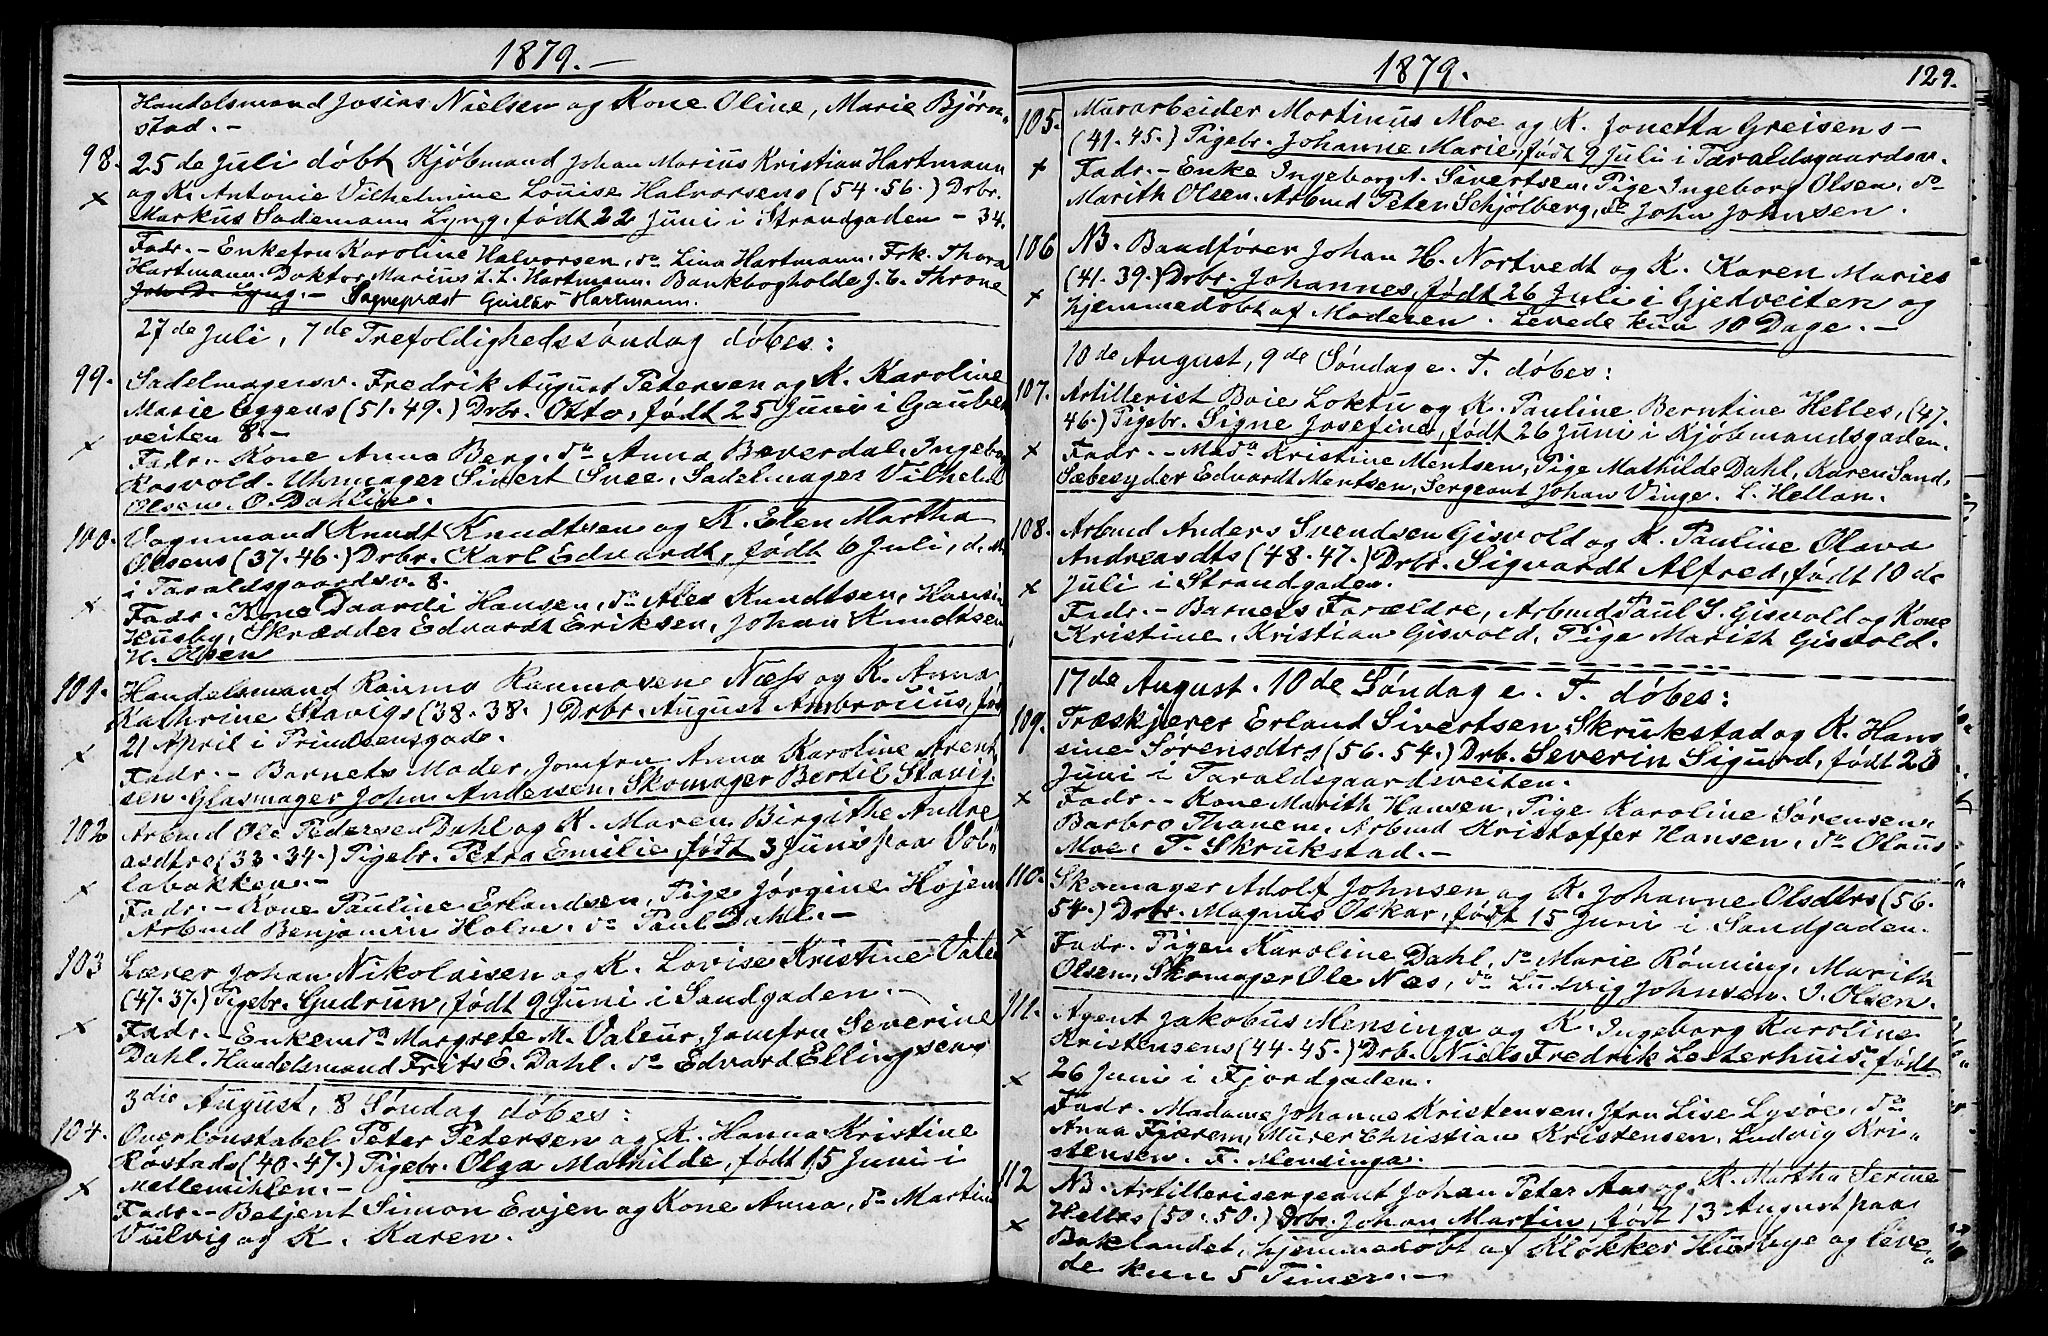 1879.—
Handelsmand Josias Nielsen og Kone Oline, Marie Bjørn„
stad.—
98. 25de Juli døbt Kjøbmand Johan Marius Kristian Hartmann
× og K. Antonie Vilhelmine Louise Halvorsens (54.56.) Drbr.
Markus Sademann Lyng, født 22 Juni i Strandgaden — 34.
Fadr.— Enkefru Karoline Halvorsen, do Lina Hartmann, Frk. Thora
Hartmann. Doktor Marius L. Hartmann. Bankbogholde J. C. Throne
Joh. D. Lyng.— Sognepræst Gustav Hartmann.
27de Juli, 7de Trefoldighedssøndag døbes:
99. Sadelmagersv. Fredrik August Petersen og K. Karoline
Marie Eggens (51.49.) Drbr. Otto, født 25 Juni i Gaubæk
× veiten 8.—
Fadr.— Kone Anna Berg, do Anna Bæverdal, Ingeborg
Rosvold. Uhrmager Sivert Snee, Sadelmager Vilhelm
Olsen. O. Dahlin.
100. Vognmand Knudt Knudtsen og K. Elen Martha
Olsens (37.46.) Drbr. Karl Edvardt, født 6 Juli, d. A.
i Taraldsgaardsv. 8.
× Fadr.— Kone Daardi Hansen, do Alex Knudtsen, Hansin
Husby, Skrædder Edvardt Eriksen, Johan Knudtsen
H. Olsen
101. Handelsmand Rasmus Rasmussen Næss og K. Anna
Kathrine Stavigs (38.38.) Drbr. August Ambrosius, fød
21 April i Prindsensgade.
× Fadr.— Barnets Moder, Jomfru Anna Karoline Arent
sen. Glasmager John Andersen, Skomager Bertil Stavig.
102 Arbmd Ole Pedersen Dahl og K. Maren Birgithe Andre
asdtrs (33.34.) Pigebr. Petra Emilie, født 3 Juni paa Vol„
× labakken.—
Fadr.— Kone Pauline Erlandsen, Pige Jørgine Højem
Arbmd Benjamin Holm. do Paul Dahl.—
103 Lærer Johan Nikolaisen og K. Lovise Kristine Valeu
(47.37.) Pigebr. Gudrun, født 9 Juni i Sandgaden.—
× Fadr.— Enkemdo Margrete M. Valeur, Jomfru Severine
Dahl. Handelsmand Frits E. Dahl. do Edvard Ellingsen
3die August, 8 Søndag døbes:
104. Overkonstabel Peter Pedersen og K. Hanna Kristine
Røstads (40.47.) Pigebr. Olga Mathilde, født 15 Juni i
× Mellemihlen.—
Fadr.— Betjent Simon Evjen og Kone Anna, do Martin
Vulvig og K. Karen.
1879. 129.
105. Murarbeider Martinus Moe og K. Jonetta Greisens—
(41.45.) Pigebr. Johanne Marie, født 9 Juli i Taraldsgaardsv.
× Fadr.— Enke Ingeborg A. Sivertsen, Pige Ingeborg Olsen, do
Marith Olsen. Arbmd Peter Schjølberg, do John Johnsen.
106 NB. Baadfører Johan H. Nortvedt og K. Karen Maries
(41.39.) Drbr. Johannes, født 26 Juli i Gjedveiten og
× hjemmedøbt af Moderen. Levede kun 10 Dage.—
10de August, 9de Søndag e. T. døbes:
107. Artillerist Boie Loktu og K. Pauline Berntine Helles, (47.
46.) Pigebr. Signe Josefine, født 26 Juni i Kjøbmandsgaden.
× Fadr.— Mado Kristine Mentsen, Pige Mathilde Dahl, Karen Sand.
Sæbesyder Edvardt Mentsen, Sergeant Johan Vinge. L. Hellan.
108. Arbmd Anders Svendsen Gisvold og K. Pauline Olava
Andreasdts (48.47.) Drbr. Sigvardt Alfred, født 10 de
× Juli i Strandgaden.
Fadr.— Barnets Forældre, Arbmd Paul S. Gisvold og Kone
Kristine, Kristian Gisvold, Pige Marith Gisvold.
17de August. 10de Søndag e. T. døbes:
109. Træskjærer Erland Sivertsen Skrukstad og K. Hans
sine Sørensdtrs (56.54.) Drb. Severin Sigurd, født 20
Juni i Taraldsgaardsveiten.
× Fadr.— Kone Marith Hansen, Pige Karoline Sørensen„
Barbro Thanem, Arbmd Kristoffer Hansen, do Olaus
Moe, T. Skrukstad.—
110. Skomager Adolf Johnsen og K. Johanne Olsdtrs (56.
54.) Drbr. Magnus Oskar, født 15 Juni i Sandgaden.
× Fadr. Pigen Karoline Dahl, do Marie Rønning, Marith
Olsen, Skomager Ole Næs, do Ludvig Johnsen. J. Olsen.
111. Agent Jakobus Mensinga og K. Ingeborg Karoline
Kristensens (44.45.) Drbr. Niels Fredrik Lesterhuis, født
× 26 Juni i Fjordgaden.
Fadr.— Madame Johanne Kristensen, Jfru Lise Lysøe, do
Anna Fjærem, Murer Christian Kristensen, Ludvig Kri„
stensen. F. Mensinga.
112 NB. Artillerisergeant Johan Peter Aas og K. Martha Serine
Helles (50.50.) Drbr. Johan Martin, født 13 August paa
× Baklandet, hjemmedøbt af Klokker Husbye og leve„
de kun 5 Timer.—